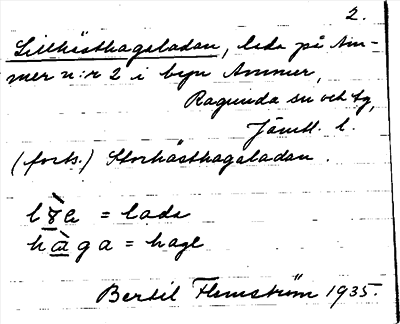 2.
Lillhästhagaladan, lada på Am-
mer n:r 2 i byn Ammer,
Ragunda sn och tg,
Jämtl. l.
(forts.) Storhästhagaladan.
= lada
haga = hage
Bertil Flemström 1935